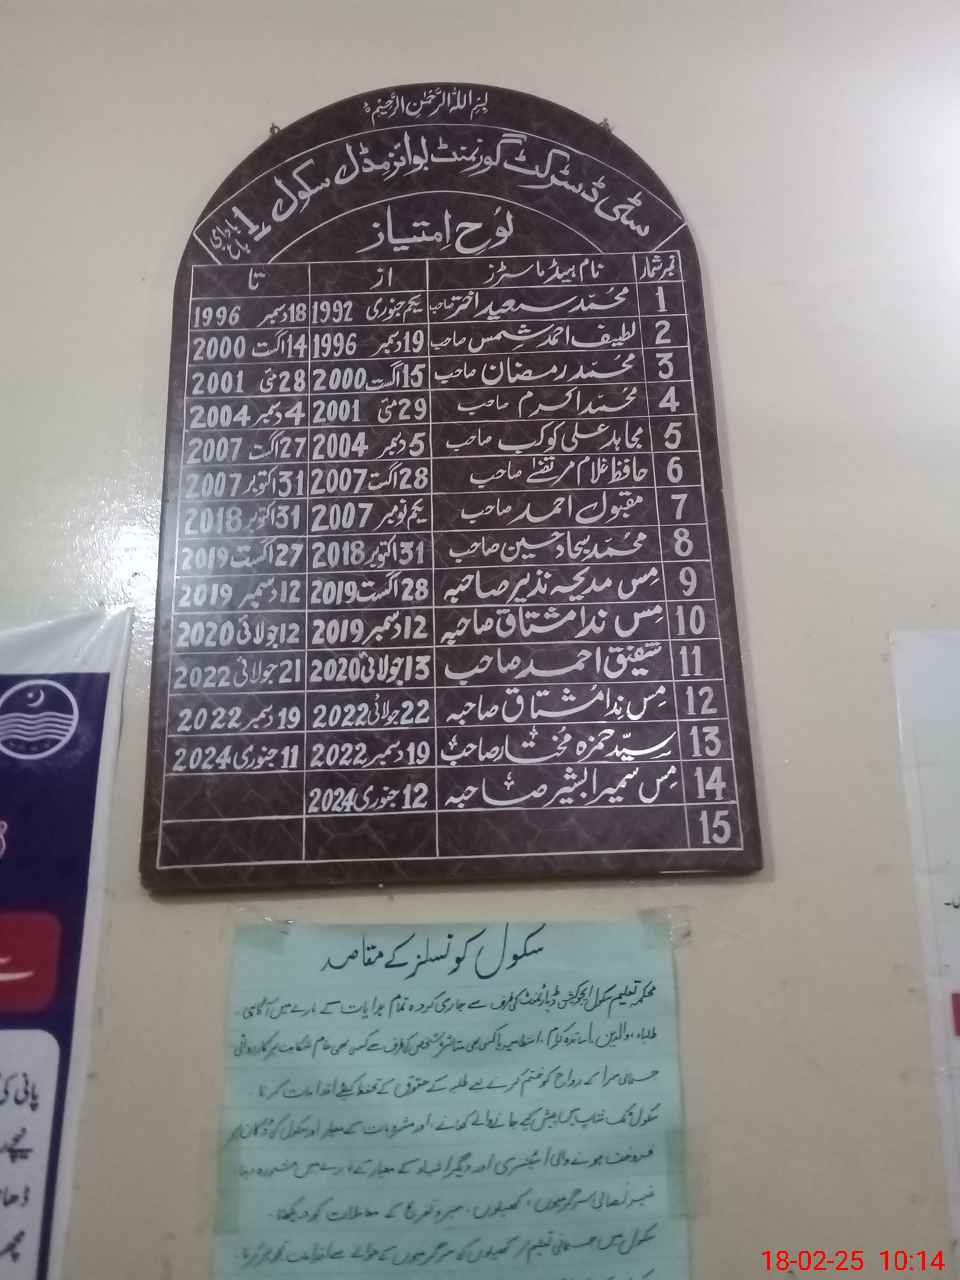 بِسْمِ اللهِ الرَّحْمٰنِ الرَّحِيْمِ
سٹی ڈسٹرکٹ گورنمنٹ بوائز مڈل سکول 11
باغ
لَوْحِ اِمتیاز
نمبر شمار نام ہیڈ ماسٹرز از تا
1 محمّد سعید اختر صاحب یکم جنوری 1992 18 دسمبر 1996
2 لطیف احمد شمس صاحب 19 دسمبر 1996 14 اگست 2000
3 محمّد رمضان صاحب 15 اگست 2000 28 مئی 2001
4 محمّد اکرم صاحب 29 مئی 2001 4 دسمبر 2004
5 مجاہد علی کوکب صاحب 5 دسمبر 2004 27 اگست 2007
6 حافظ غلام مرتضےٰ صاحب 28 اگست 2007 31 اکتوبر 2007
7 مقبول احمد صاحب یکم نومبر 2007 31 اکتوبر 2018
8 محمّد سجاد حسین صاحب 31 اکتوبر 2018 27 اگست 2019
9 مِس مدیحہ نذیر صاحبہ 28 اگست 2019 12 دسمبر 2019
10 مِس ندا مشتاق صاحبہ 12 دسمبر 2019 12 جولائی 2020
11 شفیق احمد صاحب 13 جولائی 2020 21 جولائی 2022
12 مِس نِدا مُشتاق صاحبہ 22 جولائی 2022 19 دسمبر 2022
13 سیّد حمزہ مُختار صاحب 19 دسمبر 2022 11 جنوری 2024
14 مِس سمیرا بشیر صاحبہ 12 جنوری 2024
15
سکول کونسلز کے مقاصد
محکمہ تعلیم سکول ایجوکیشن ڈیپارٹمنٹ کی طرف سے جاری کردہ تمام ہدایات کے بارے میں آگاہی۔
طلباء، والدین، اساتذہ کرام، انتظامیہ یا کسی بھی متاثرہ شخص کی طرف سے کسی بھی عام شکایت پر کارروائی
جسمانی سزا کے رواج کو ختم کرنے طلبہ کے حقوق کے تحفظ کیلئے اقدامات کرنا۔
سکول میں پیش کیے جانے والے کھانے اور مشروبات کے معیار اور سکول کی دُکان پر
فروخت ہونے والی اسٹیشنری اور دیگر اشیاء کے معیار کے بارے میں مشورہ دینا
غیر نصابی سرگرمیوں، کھیلوں، سیر و تفریح کے معاملات کو دیکھنا۔
سکول میں جسمانی تعلیم کھیلوں کی سرگرمیوں کے حوالے سے
پانی کی
18-02-25 10:14